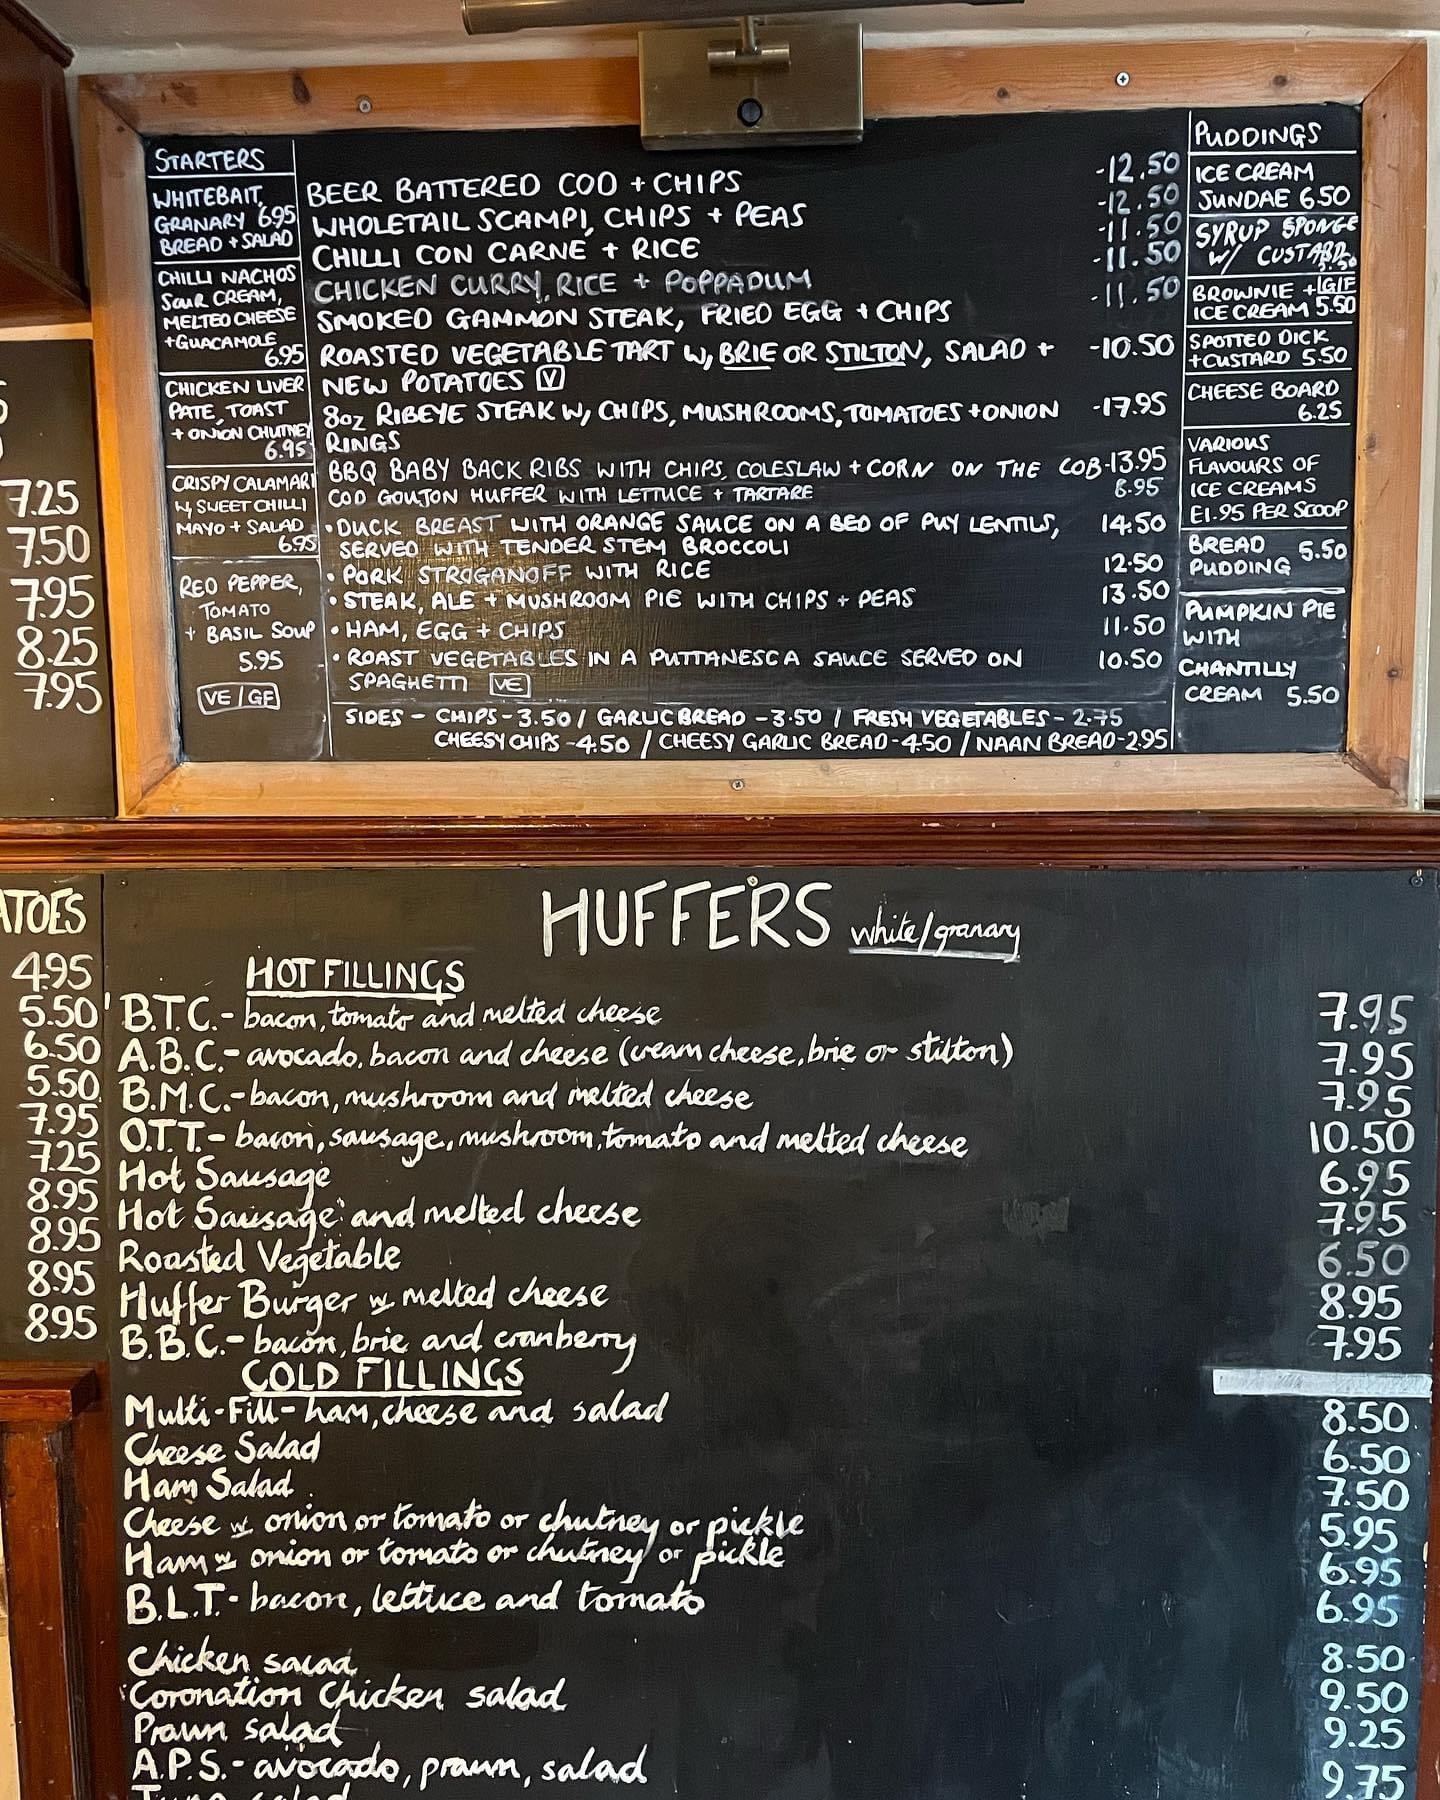 STARTERS
WHITEBAIT,
GRANARY 6.95
BREAD + SALAD
CHILLI NACHOS
SOUR CREAM,
MELTED CHEESE
+ GUACAMOLE
6.95
CHICKEN LIVER
PATE, TOAST
+ ONION CHUTNEY
6.95
CRISPY CALAMARI
W/ SWEET CHILLI
MAYO + SALAD
6.95
RED PEPPER,
TOMATO
+ BASIL SOUP
5.95
VE/GF
BEER BATTERED COD + CHIPS -12.50
WHOLETAIL SCAMPI, CHIPS + PEAS -12.50
CHILLI CON CARNE + RICE -11.50
CHICKEN CURRY, RICE + POPPADUM -11.50
SMOKED GAMMON STEAK, FRIED EGG + CHIPS -11.50
ROASTED VEGETABLE TART W/ BRIE OR STILTON, SALAD + -10.50
NEW POTATOES V
8oz RIBEYE STEAK W/ CHIPS, MUSHROOMS, TOMATOES + ONION -17.95
RINGS
BBQ BABY BACK RIBS WITH CHIPS, COLESLAW + CORN ON THE COB-13.95
COD GOUJON HUFFER WITH LETTUCE + TARTARE 8.95
• DUCK BREAST WITH ORANGE SAUCE ON A BED OF PUY LENTILS, 14.50
SERVED WITH TENDER STEM BROCCOLI
• PORK STROGANOFF WITH RICE 12.50
• STEAK, ALE + MUSHROOM PIE WITH CHIPS + PEAS 13.50
• HAM, EGG + CHIPS 11.50
• ROAST VEGETABLES IN A PUTTANESCA SAUCE SERVED ON 10.50
SPAGHETTI VE
SIDES - CHIPS-3.50 / GARLIC BREAD -3.50 / FRESH VEGETABLES- 2.75
CHEESY CHIPS -4.50 / CHEESY GARLIC BREAD-4.50 / NAAN BREAD-2.95
PUDDINGS
ICE CREAM
SUNDAE 6.50
SYRUP SPONGE
W/ CUSTARD
5.50
BROWNIE + GF
ICE CREAM 5.50
SPOTTED DICK
+CUSTARD 5.50
CHEESE BOARD
6.25
VARIOUS
FLAVOURS OF
ICE CREAMS
£1.95 PER SCOOP
BREAD 5.50
PUDDING
PUMPKIN PIE
WITH
CHANTILLY
CREAM 5.50
7.25
7.50
7.95
8.25
7.95
ATOES
4.95
5.50
6.50
5.50
7.95
7.25
8.95
8.95
8.95
8.95
HUFFERS white/granary
HOT FILLINGS
B.T.C.- bacon, tomato and melted cheese 7.95
A.B.C.- avocado, bacon and cheese (cream cheese, brie or stilton) 7.95
B.M.C.- bacon, mushroom and melted cheese 7.95
O.T.T.- bacon, sausage, mushroom, tomato and melted cheese 10.50
Hot Sausage 6.95
Hot Sausage and melted cheese 7.95
Roasted Vegetable 6.50
Huffer Burger w melted cheese 8.95
B.B.C.- bacon, brie and cranberry 7.95
COLD FILLINGS
Multi-Fill- ham, cheese and salad 8.50
Cheese Salad 6.50
Ham Salad 7.50
Cheese w onion or tomato or chutney or pickle 5.95
Ham w onion or tomato or chutney or pickle 6.95
B.L.T- bacon, lettuce and tomato 6.95
Chicken salad 8.50
Coronation Chicken salad 9.50
Prawn salad 9.25
A.P.S.- avocado, prawn, salad 9.75
Tuna salad